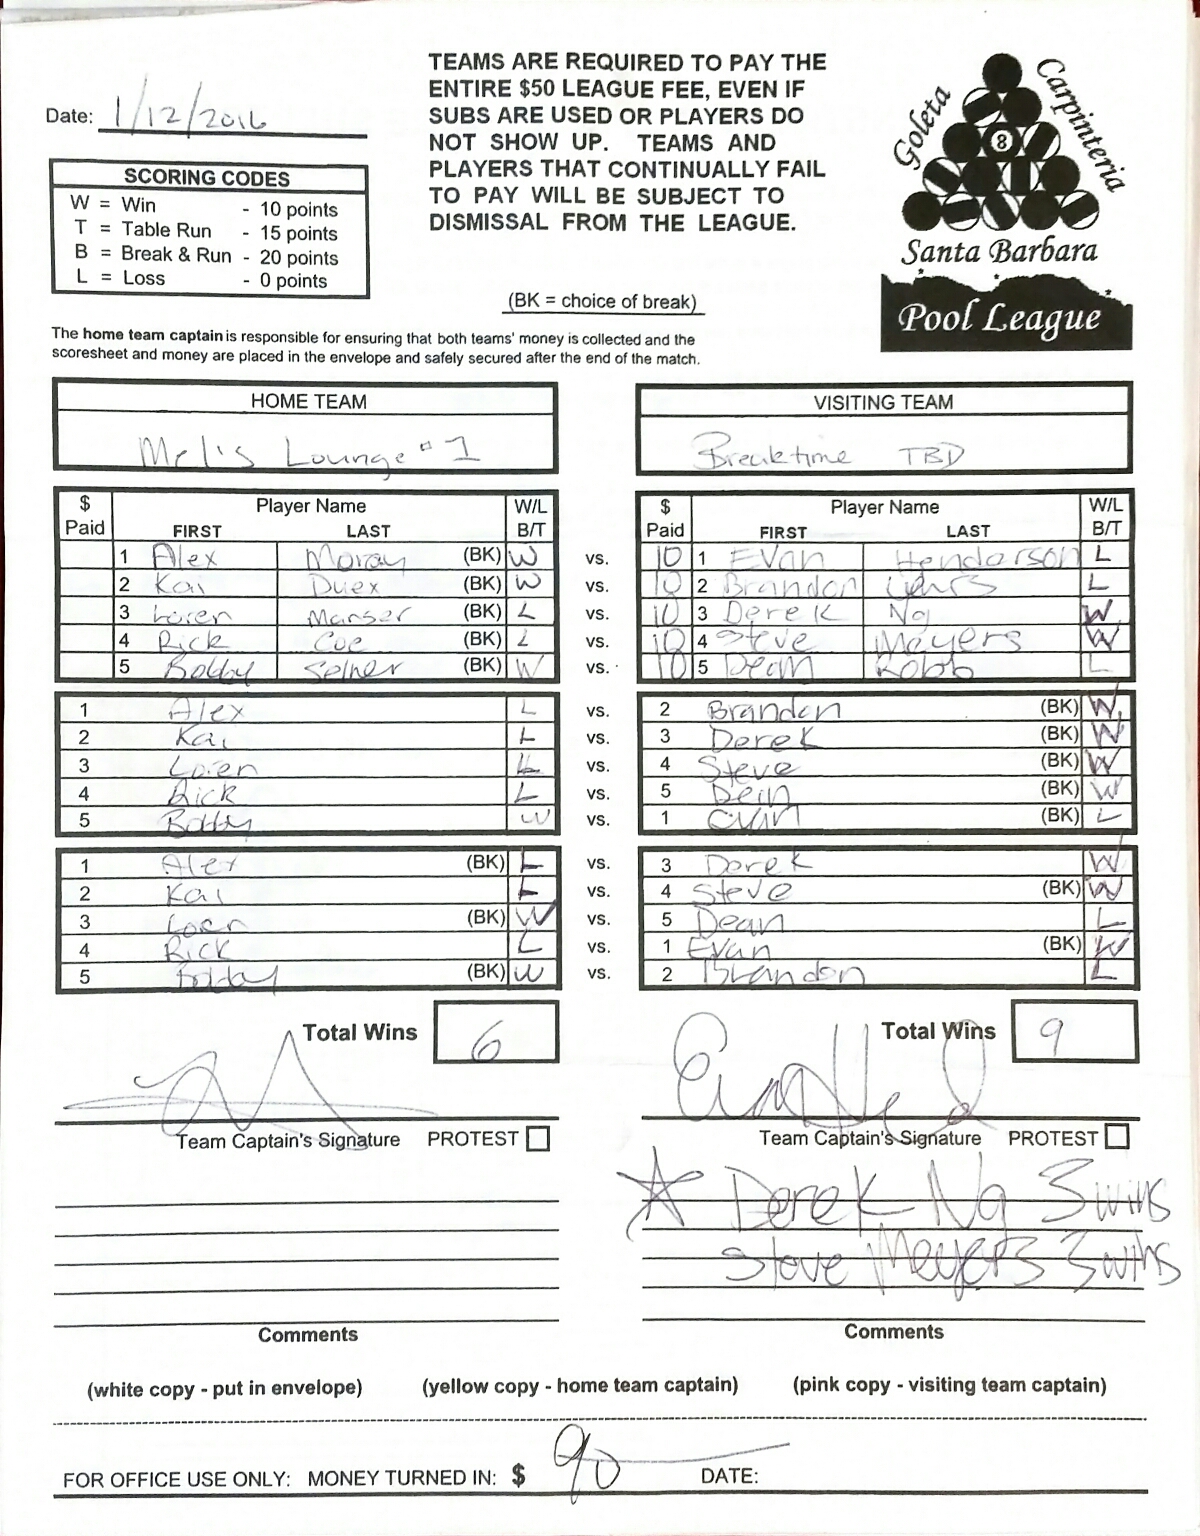 Date: 1/12/2016
TEAMS ARE REQUIRED TO PAY THE
ENTIRE $50 LEAGUE FEE, EVEN IF
SUBS ARE USED OR PLAYERS DO
NOT SHOW UP. TEAMS AND
PLAYERS THAT CONTINUALLY FAIL
TO PAY WILL BE SUBJECT TO
DISMISSAL FROM THE LEAGUE.
Goleta
Carpinteria
8
Santa Barbara
Pool League
SCORING CODES
W = Win - 10 points
T = Table Run - 15 points
B = Break & Run - 20 points
L = Loss - 0 points
(BK = choice of break)
The home team captain is responsible for ensuring that both teams' money is collected and the
scoresheet and money are placed in the envelope and safely secured after the end of the match.
HOME TEAM VISITING TEAM
Mel's Lounge #1 Breaktime TBD
$ Paid Player Name FIRST LAST W/L B/T $ Paid Player Name FIRST LAST W/L B/T
1 Alex Moray (BK) W vs. 10 1 Evan Henderson L
2 Kai Duex (BK) W vs. 10 2 Brandon L
3 Loren Manser (BK) L vs. 10 3 Derek Ng W
4 Rick Coe (BK) L vs. 10 4 Steve Meyers W
5 Bobby Selner (BK) W vs. 10 5 Dean Robb L
1 Alex L vs. 2 Brandon (BK) W
2 Kai L vs. 3 Derek (BK) W
3 Loren L vs. 4 Steve (BK) W
4 Rick L vs. 5 Dean (BK) W
5 Bobby W vs. 1 Evan (BK) L
1 Alex (BK) L vs. 3 Derek W
2 Kai L vs. 4 Steve (BK) W
3 Loren (BK) W vs. 5 Dean L
4 Rick L vs. 1 Evan (BK) W
5 Bobby (BK) W vs. 2 Brandon L
Total Wins 6 Total Wins 9
Team Captain's Signature PROTEST Team Captain's Signature PROTEST
Derek Ng 3 wins
Steve Meyers 3 wins
Comments Comments
(white copy - put in envelope) (yellow copy - home team captain) (pink copy - visiting team captain)
FOR OFFICE USE ONLY: MONEY TURNED IN: $ 90 DATE: